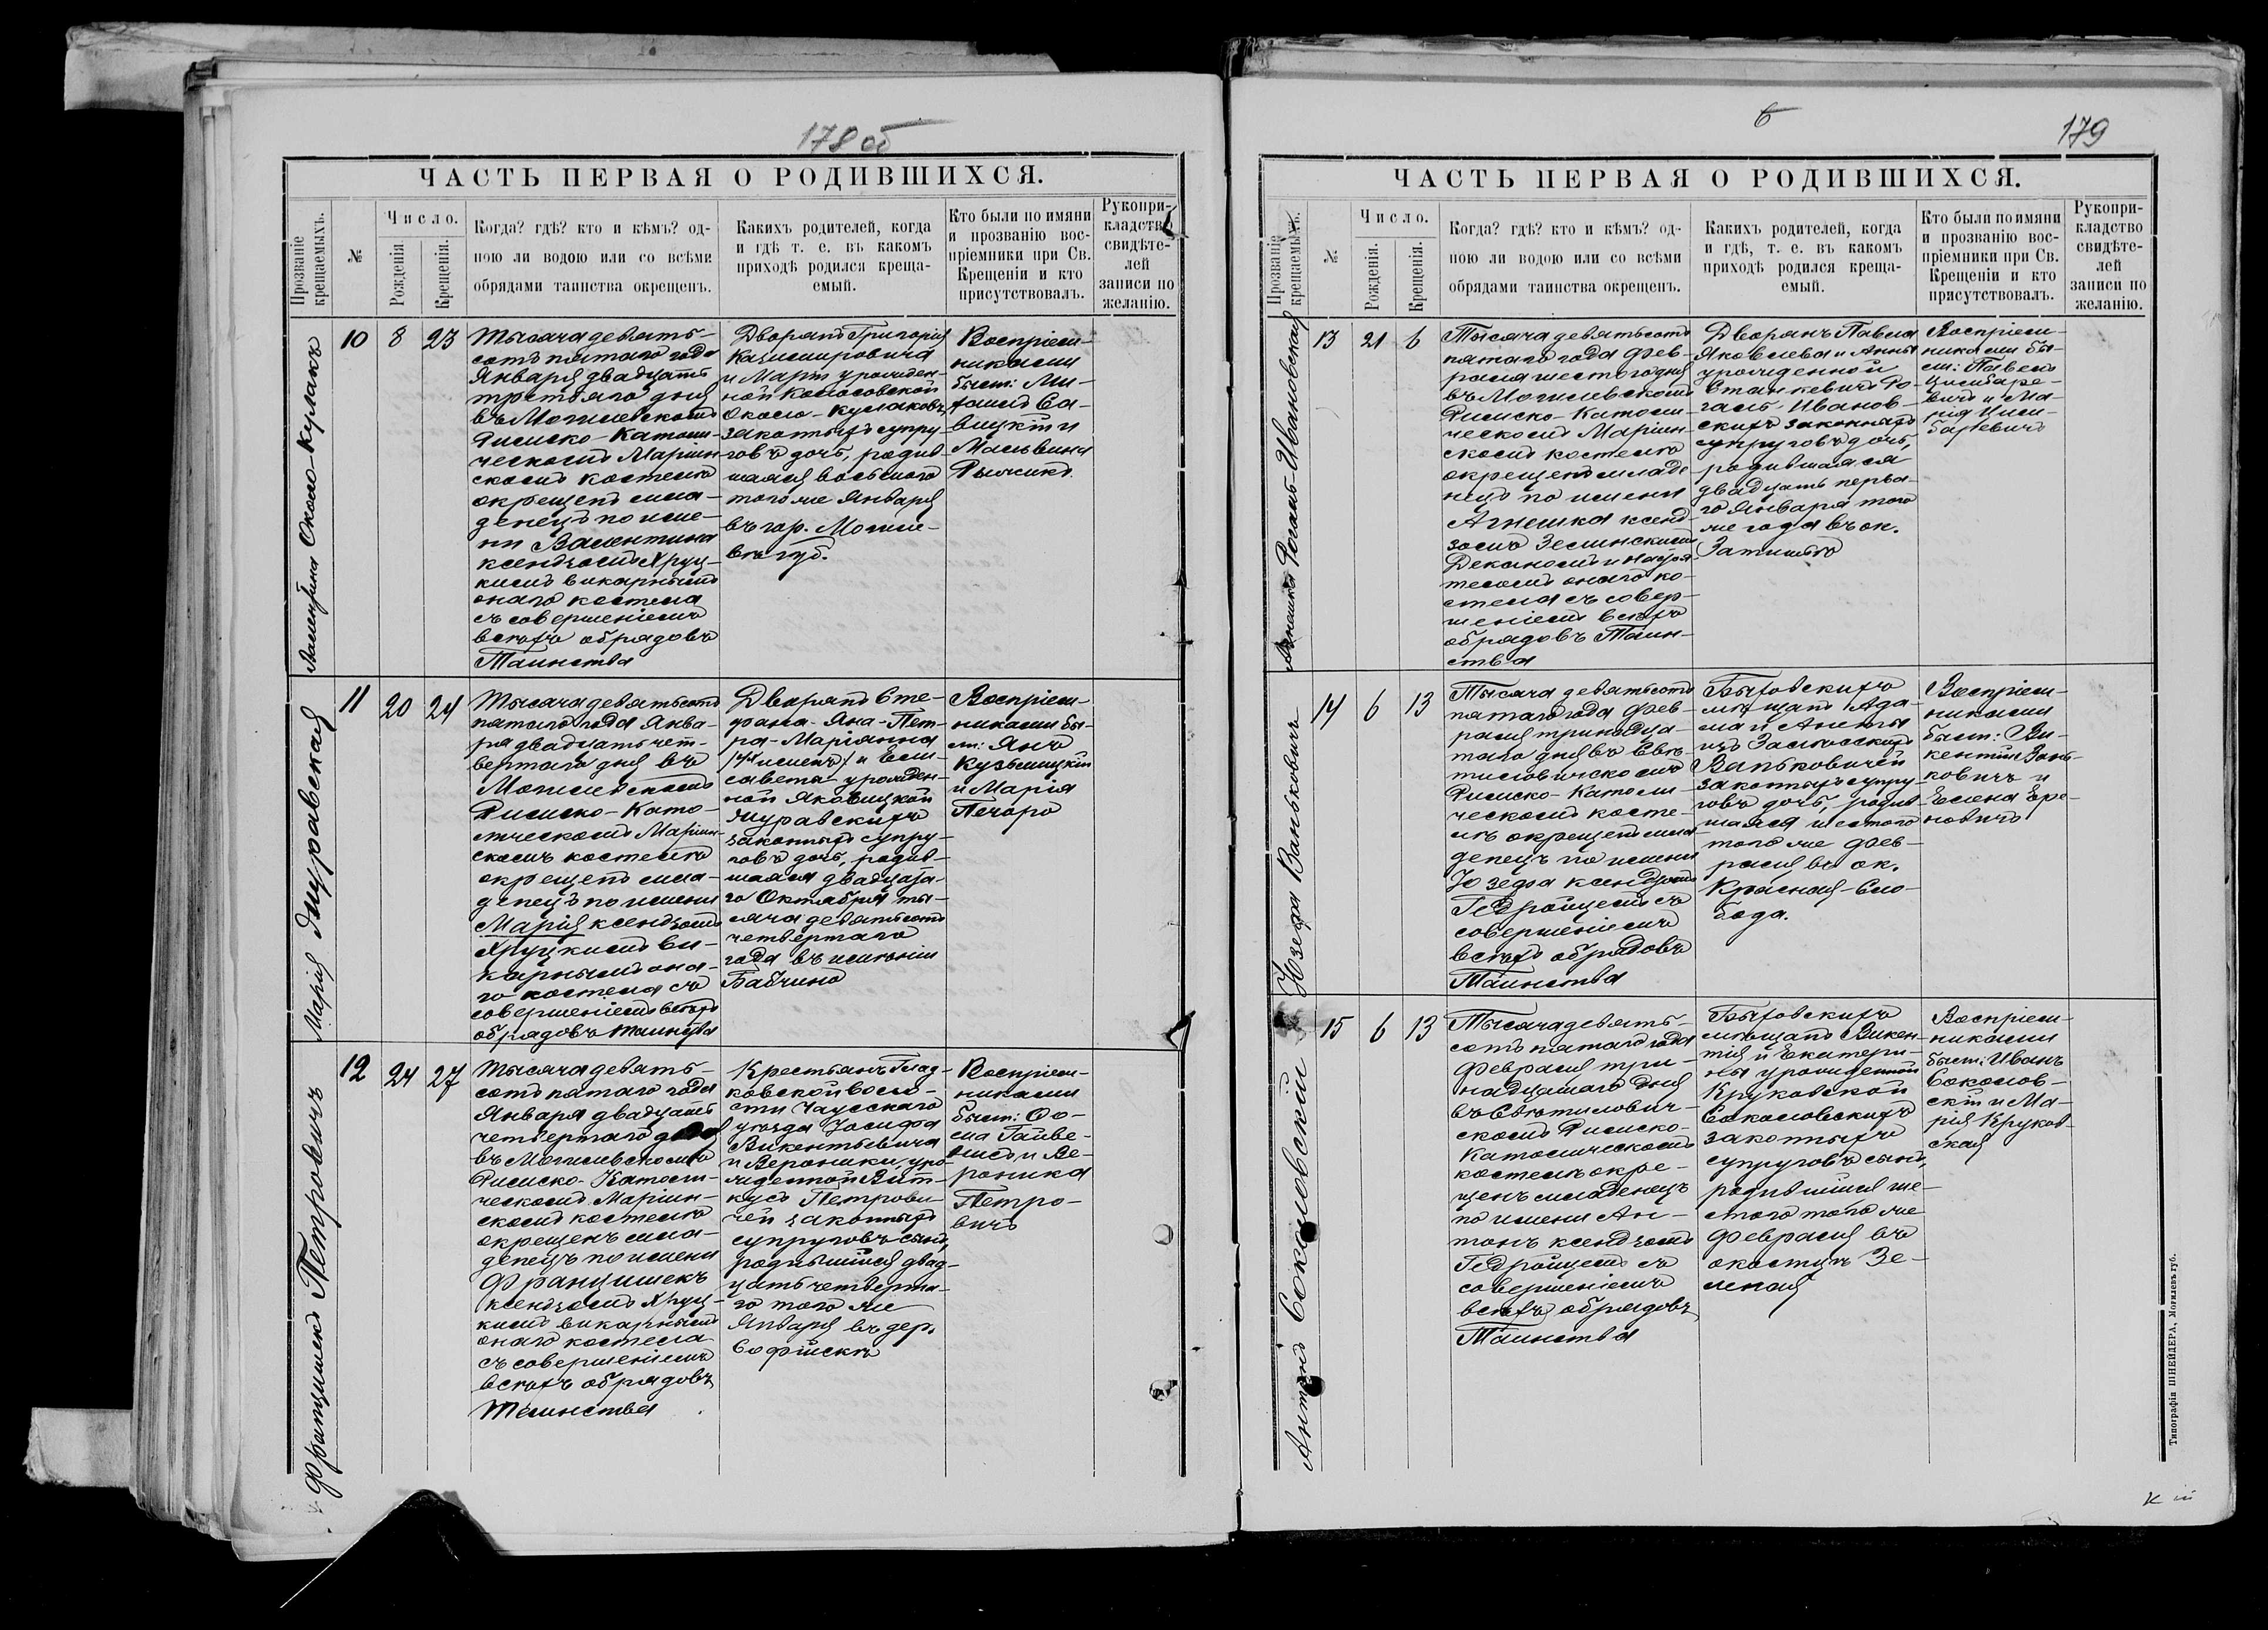 178 об
ЧАСТЬ ПЕРВАЯ О РОДИВШИХСЯ.
Прозваніе крещаемыхъ.
№
Число.
Рожденія.
Крещенія.
Когда? гдѣ? кто и кѣмъ? од-
ною ли водою или со всѣми
обрядами таинства окрещенъ.
Какихъ родителей, когда
и гдѣ т. е. въ какомъ
приходѣ родился креща-
емый.
Кто были по имяни
и прозванію вос-
пріемники при Св.
Крещеніи и кто
присутствовалъ.
Рукопри-
кладство
свидѣте-
лей
записи по
желанію.
Валентина Около-Кулакъ
10
8
23
Тысяча девять-
сотъ пятаго года
Января двадцать
третьяго дня
въ Могилевскомъ
Римско-Католи-
ческомъ Маріин-
скомъ костелѣ
окрещенъ мла-
денецъ по име-
ни Валентина
ксендзомъ Хруц-
кимъ викарнымъ
онаго костела
съ совершеніемъ
всѣхъ обрядовъ
Таинства
Дворянъ Григорія
Казимировича
и Марти урожден-
ной Колосовской
Около-Кулаковъ
законныхъ супру-
говъ дочь, родив-
шаяся восьмого
того же Января
въ гор. Моги-
левѣ губ.
Воспріем-
никами
были: Ми-
хаилъ Са-
вицкій и
Мальвина
Рыжикъ
Марія Журавская
11
20
24
Тысяча девятьсотъ
пятаго года Янва-
ря двадцать чет-
вертаго дня въ
Могилевскомъ
Римско-Като-
лическомъ Маріин-
скомъ костелѣ
окрещенъ мла-
денецъ по имени
Марія ксендзомъ
Хруцкимъ ви-
карнымъ она-
го костела съ
совершеніемъ всѣхъ
обрядовъ таинства
Дворянъ Сте-
фана-Яна-Пет-
ра-Маріанна
/4х именъ/ и Ели-
саветы урожден-
ной Яковицкой
Журавскихъ
законныхъ супру-
говъ дочь, родив-
шаяся двадцата-
го Октября ты-
сяча девятьсотъ
четвертаго
года въ имѣніи
Бабчино
Воспріем-
никами бы-
ли: Янъ
Кузьмицкій
и Марія
Печоро
Францишекъ Петровичъ
12
24
27
Тысяча девять-
сотъ пятаго года
Января двадцать
четвертаго дня
въ Могилевскомъ
Римско-Католи-
ческомъ Маріин-
скомъ костелѣ
окрещенъ мла-
денецъ по имени
Францишекъ
ксендзомъ Хруц-
кимъ викарнымъ
онаго костела
съ совершеніемъ
всѣхъ обрядовъ
Таинства
Крестьянъ Глад-
ковской воло-
сти Чаусскаго
уѣзда Іосифа
Викентьевича
и Вероники, уро-
жденной Вит-
кусъ Петрови-
чей законныхъ
супруговъ сынъ,
родившійся двад-
цать четверта-
го того же
Января въ дер.
Софійскѣ
Воспріем-
никами
были: Ѳо-
ма Гайве-
и Ве-
роника
Петро-
вичъ
6
179
ЧАСТЬ ПЕРВАЯ О РОДИВШИХСЯ.
Прозваніе крещаемыхъ.
№
Число.
Рожденія.
Крещенія.
Когда? гдѣ? кто и кѣмъ? од-
ною ли водою или со всѣми
обрядами таинства окрещенъ.
Какихъ родителей, когда
и гдѣ, т. е. въ какомъ
приходѣ родился креща-
емый.
Кто были по имяни
и прозванію вос-
пріемники при Св.
Крещеніи и кто
присутствовалъ.
Рукопри-
кладство
свидѣте-
лей
записи по
желанію.
Агнешка Рогаль-Ивановская
13
21
6
Тысяча девятьсотъ
пятаго года Фев-
раля шестого дня
въ Могилевскомъ
Римско-Католи-
ческомъ Маріин-
скомъ костелѣ
окрещенъ младе-
нецъ по имени
Агнешка ксенд-
зомъ Зелинскимъ
Деканомъ и Настоя-
телемъ онаго ко-
стела съ совер-
шеніемъ всѣхъ
обрядовъ Таин-
ства
Дворянъ Павла
Яковлева и Анны
урожденной
Станкевичъ Ро-
галь-Иванов-
скихъ законныхъ
супруговъ дочь,
родившаяся
двадцать перва-
го Января того
же года въ ок.
Затишьѣ
Воспріем-
никами бы-
ли: Павелъ
Цимбаре-
вичъ и Ма-
рія Цим-
баревичъ
Юзефа Ваньковичъ
14
6
13
Тысяча девятьсотъ
пятаго года Фев-
раля тринадца-
таго дня въ Свя-
тиловичскомъ
Римско-Католи-
ческомъ косте-
лѣ окрещенъ мла-
денецъ по имени
Юзефа ксендзомъ
Гедройцемъ съ
совершеніемъ
всѣхъ обрядовъ
Таинства
Быховскихъ
мѣщанъ Ада-
ма и Анеты
изъ
Ваньковичей
законныхъ супру-
говъ дочь, родив-
шаяся шестого
того же Фев-
раля въ ок.
Красная-Сло-
бода.
Воспріем-
никами
были: Ви-
кентій Вань-
ковичъ и
Елена Ере-
мовичъ
Антонъ Соколовскій
15
6
13
Тысяча девять-
сотъ пятаго года
Февраля три-
надцатаго дня
въ Святилович-
скомъ Римско-
Католическомъ
костелѣ окре-
щенъ младенецъ
по имени Ан-
тонъ ксендзомъ
Гедройцемъ съ
совершеніемъ
всѣхъ обрядовъ
Таинства
Быховскихъ
мѣщанъ Викен-
тія и Екатери-
ны урожденной
Круковской
Соколовскихъ
законныхъ
супруговъ сынъ,
родившійся ше-
стого того же
Февраля въ
околицѣ Зе-
леная
Воспріем-
никами
были: Иванъ
Соколов-
скій и Ма-
рія Круков-
ская
Типографія ШНЕЙДЕРА, Могилевъ губ.